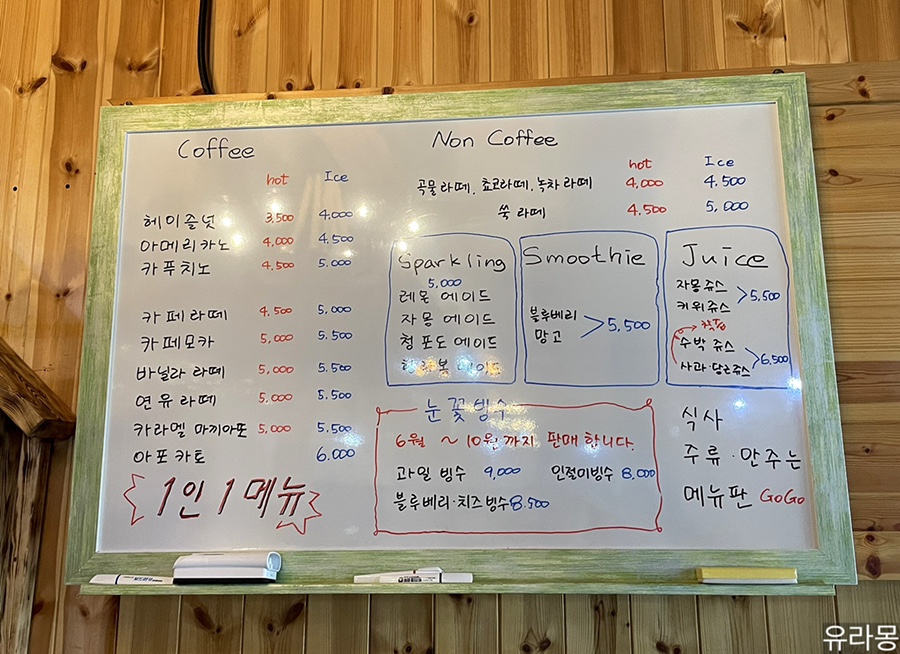 Coffee
hot Ice
헤이즐넛 3,500 4,000
아메리카노 4,000 4,500
카푸치노 4,500 5,000
카페라떼 4,500 5,000
카페모카 5,000 5,500
바닐라 라떼 5,000 5.500
연유 라떼 5,000 5.500
카라멜 마끼아또 5,000 5.500
아포카토 6.000
1인 1메뉴
Non Coffee
hot Ice
곡물라떼, 쵸코라떼, 녹차라떼 4,000 4,500
쑥 라떼 4.500 5,000
Sparkling
5,000
레몬 에이드
자몽 에이드
청포도 에이드
에이드
Smoothie
블루베리
망고
5,500
Juice
자몽쥬스
키위쥬스
5,500
수박 쥬스
사과·당근쥬스
6,500
눈꽃빙수
6월 ~ 10월까지 판매합니다.
과일 빙수 9,000 인절미빙수 8,000
블루베리·치즈빙수 8.500
식사
주류·안주는
메뉴판 GoGo
유라몽